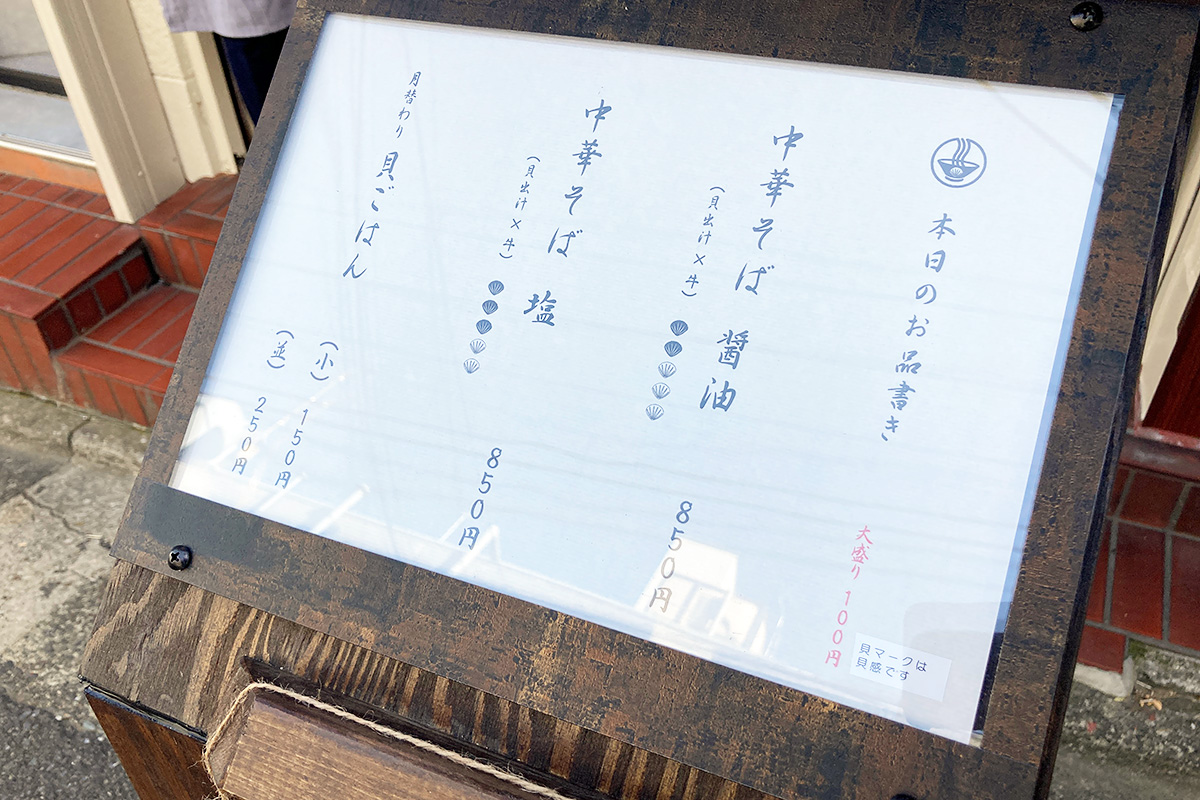 本日のお品書き
大盛り 100円
貝マークは
貝感です
中華そば 醤油 850円
(貝出汁×牛)
中華そば 塩 850円
(貝出汁×牛)
月替わり 貝ごはん
(小) 150円
(並) 250円